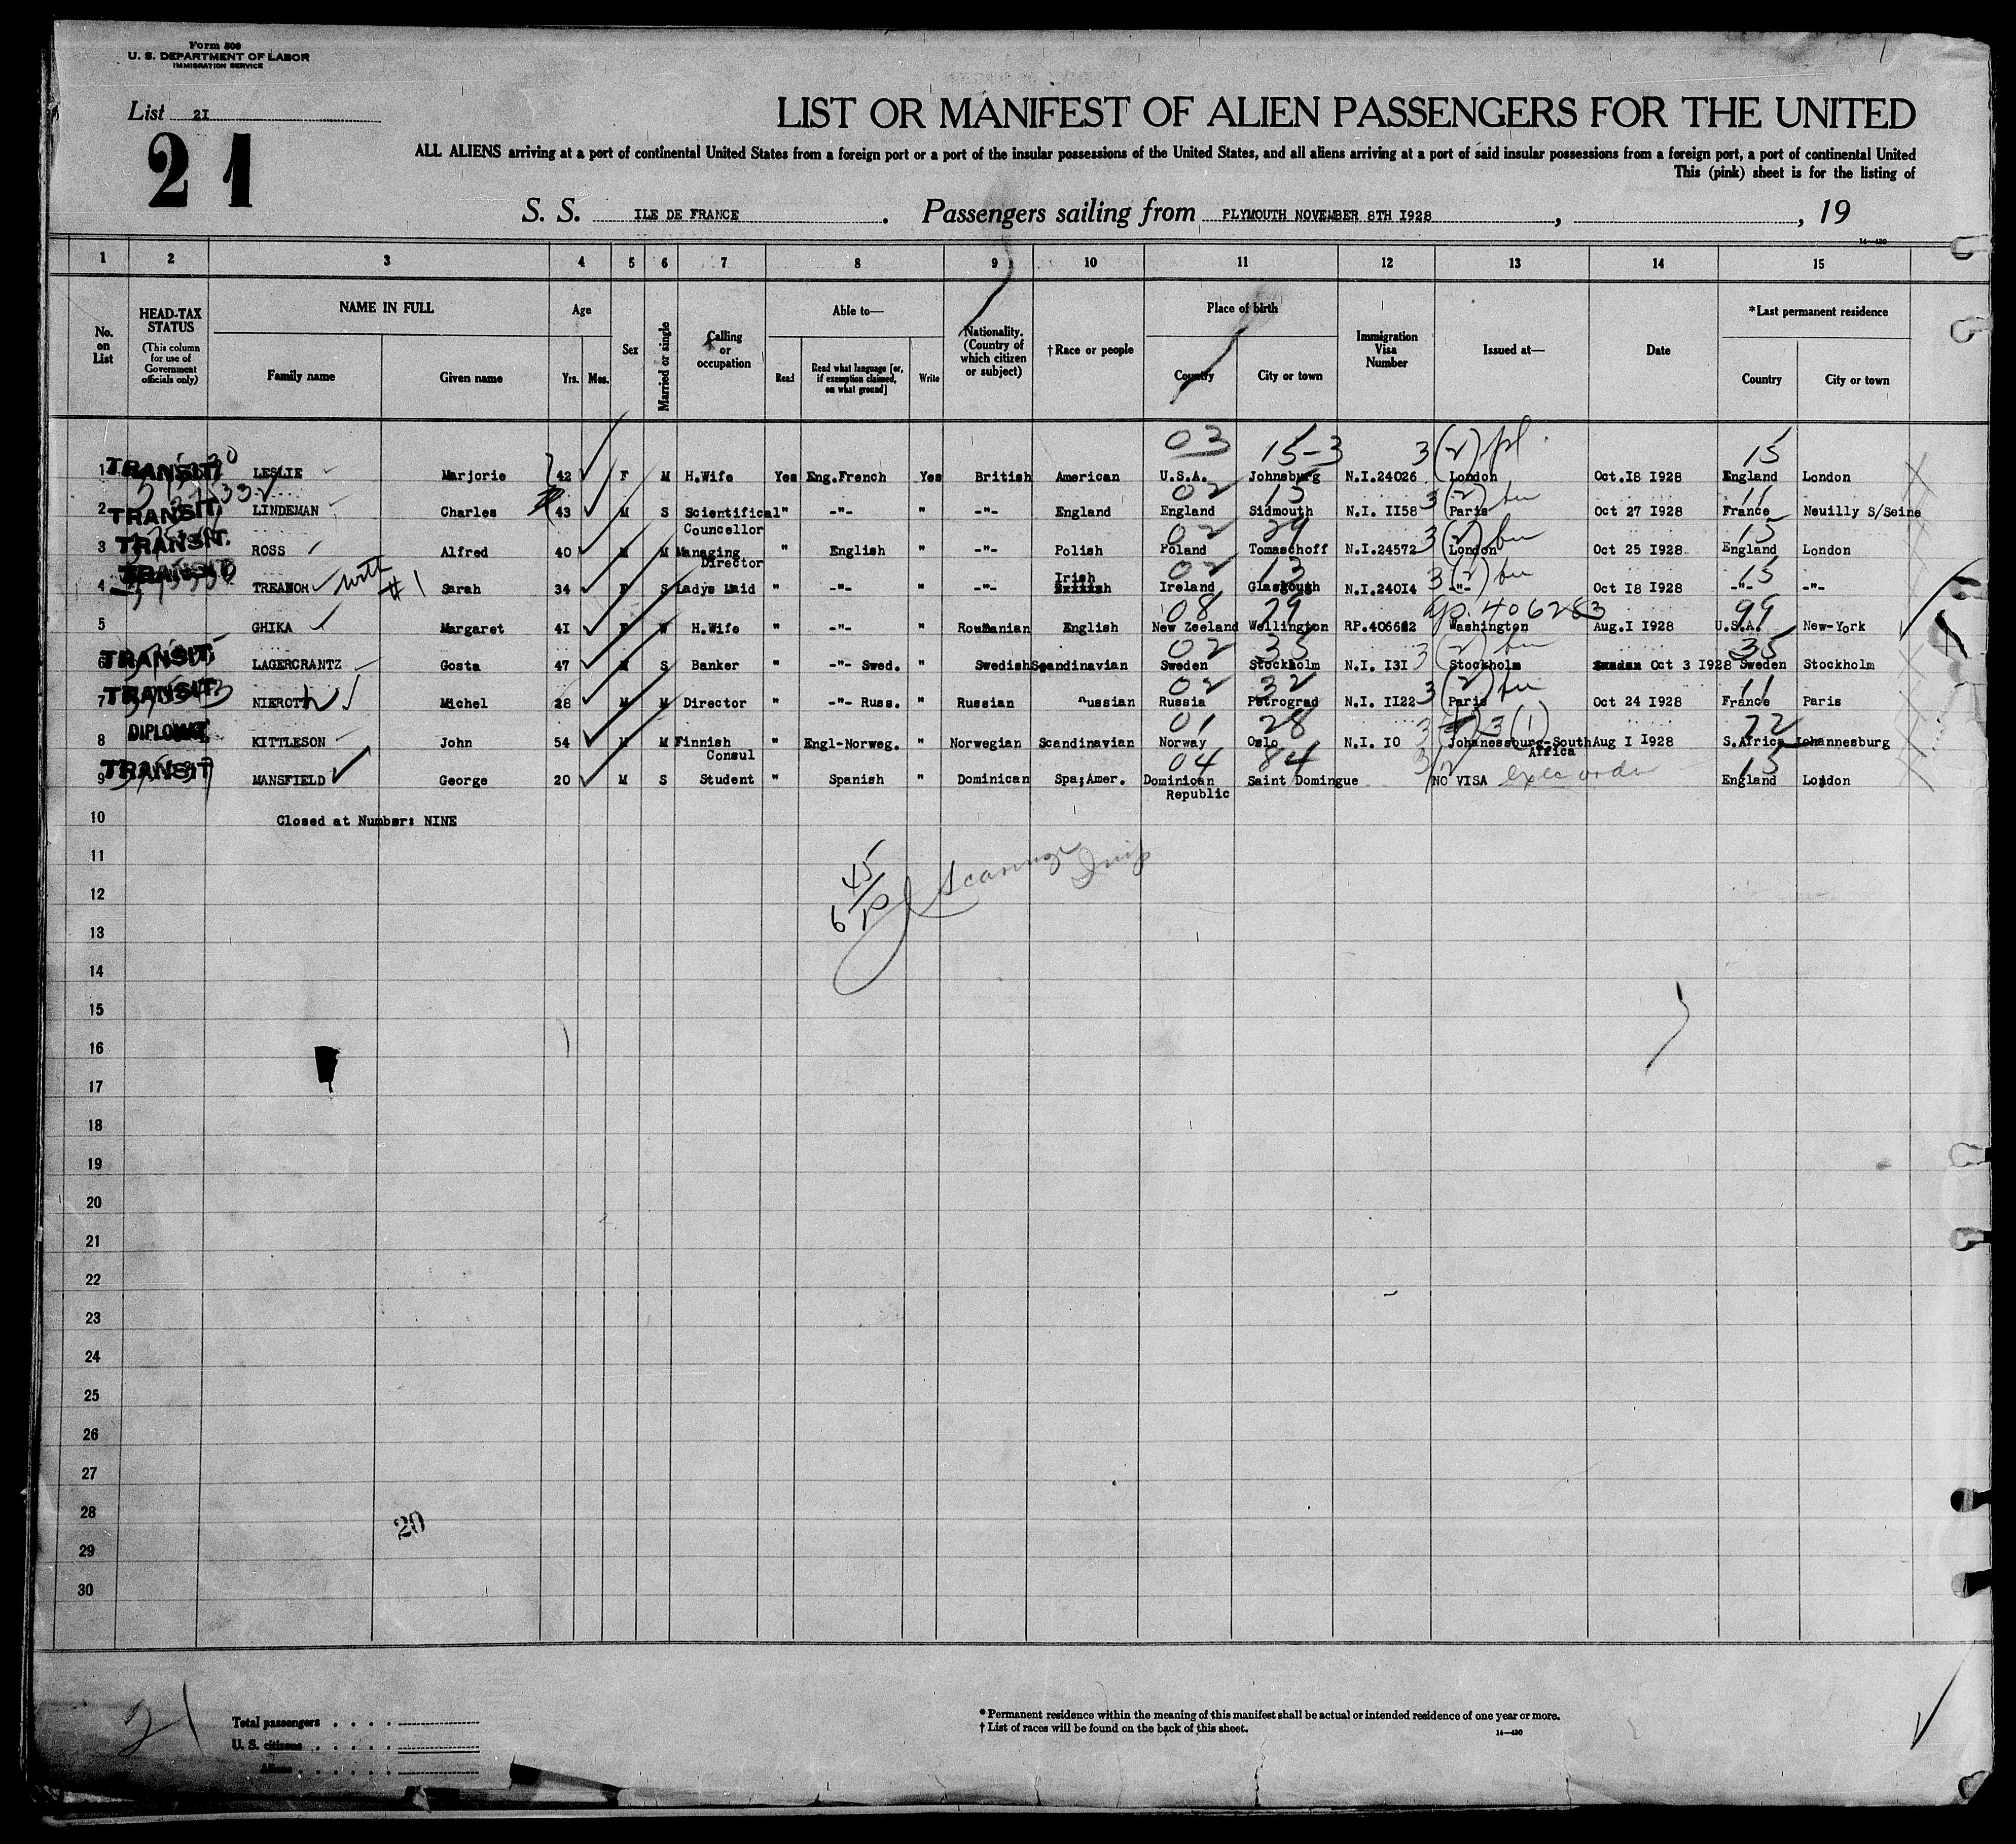 Form 500
U. S. DEPARTMENT OF LABOR
IMMIGRATION SERVICE
List 2I
21
LIST OR MANIFEST OF ALIEN PASSENGERS FOR THE UNITED
ALL ALIENS arriving at a port of continental United States from a foreign port or a port of the insular possessions of the United States, and all aliens arriving at a port of said insular possessions from a foreign port, a port of continental United
This (pink) sheet is for the listing of
S. S. ILE DE FRANCE. Passengers sailing from PLYMOUTH NOVEMBER 8TH I928, , 19
14—430
1 2 3 4 5 6 7 8 9 10 11 12 13 14 15
No. on List
HEAD-TAX STATUS (This column for use of Government officials only)
NAME IN FULL
Family name Given name
Age
Yrs. Mos.
Sex
Married or single
Calling or occupation
Able to—
Read Read what language [or, if exemption claimed, on what ground] Write
Nationality. (Country of which citizen or subject)
† Race or people
Place of birth
Country City or town
Immigration Visa Number
Issued at—
Date
* Last permanent residence
Country City or town
03 15-3 3(2) pl. 15
1 TRANSIT LESLIE Marjorie 42 F M H.Wife Yes Eng.French Yes British American U.S.A. Johnsburg N.I.24026 London Oct.I8 I928 England London
02 15 3(2) 11
2 TRANSIT. LINDEMAN Charles 43 M S Scientifical " -"- " -"- England England Sidmouth N.I. II58 Paris Oct 27 I928 France Neuilly S/Seine
Councellor
02 29 3(2) 15
3 TRANSIT. ROSS Alfred 40 M M Managing " English " -"- Polish Poland Tomaschoff N.I.24572 London Oct 25 I928 England London
Director
02 13 3(2) 15
Irish
4 TRANSIT TREANOR with #1 Sarah 34 F S Ladys Maid " -"- " -"- British Ireland Glasgough N.I.240I4 -"- Oct I8 I928 -"- -"-
08 29 406283 99
5 GHIKA Margaret 4I F W H.Wife " -"- " Roumanian English New Zeeland Wellington RP.406682 Washington Aug.I I928 U.S.A. New-York
02 35 3(2) 35
6 TRANSIT LAGERCRANTZ Gosta 47 M S Banker " -"- Swed. " Swedish Scandinavian Sweden Stockholm N.I. I3I Stockholm Oct 3 I928 Sweden Stockholm
02 32 3(2) 11
7 TRANSIT NIEROTH Michel 28 M M Director " -"- Russ. " Russian Russian Russia Petrograd N.I. II22 Paris Oct 24 I928 France Paris
01 28 3(1) 22
8 DIPLOMAT KITTLESON John 54 M M Finnish " Engl-Norweg. " Norwegian Scandinavian Norway Oslo N.I. IO Johanessburg-South Aug I I928 S.Africa Johannesburg
Consul Africa
04 84 15
9 TRANSIT MANSFIELD George 20 M S Student " Spanish " Dominican Spa;Amer. Dominican Saint Domingue NO VISA England London
Republic
10 Closed at Number: NINE
11
12
13
14
15
16
17
18
19
20
21
22
23
24
25
26
27
28
20
29
30
21
Total passengers
U. S. citizens
Aliens
* Permanent residence within the meaning of this manifest shall be actual or intended residence of one year or more.
† List of races will be found on the back of this sheet.
14—430